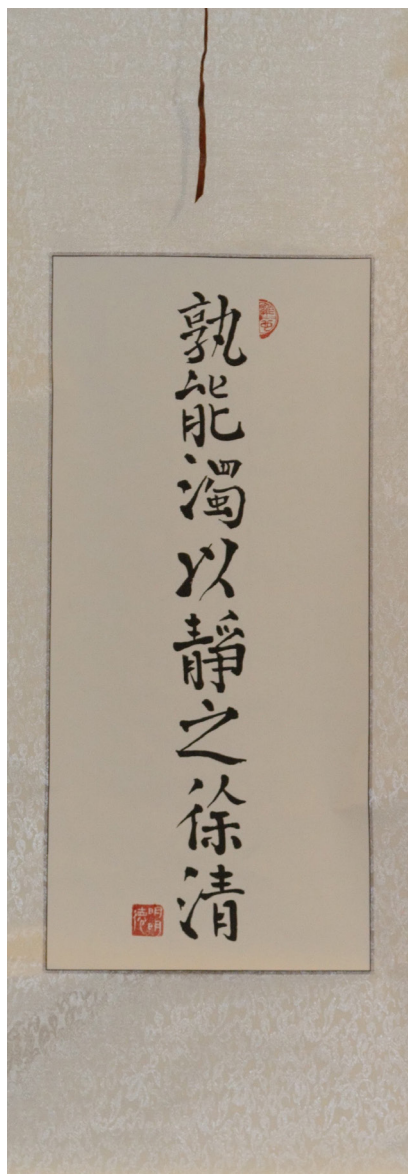 孰能濁以靜之徐清